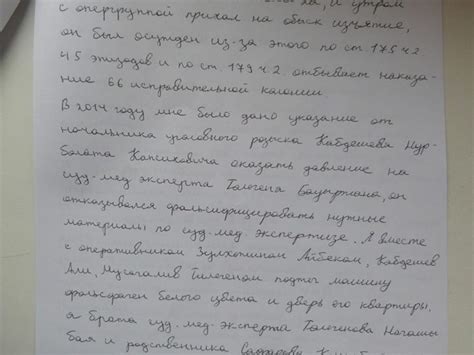 ха, и утром
с опергруппой приехал на обыск изъятие,
он был осужден из-за этого по ст. 175 ч 2
45 эпизодов и по ст. 179 ч. 2. отбывает наказа-
ние 66 исправительной колонии
В 2014 году мне было дано указание от
начальника уголовного розыска Кабдешева Нур-
болата Капсиховича оказать давление на
суд. мед эксперта Тлегена Бауыржана, он
отказывался фальсифицировать нужные
материалы по суд. мед. экспертизе. Я вместе
с оперативником Айбеком, Кабдешев
Али, Мусагалив Тлегеном поджог машину
фольсфаген белого цвета и дверь его квартиры,
а брата суд. мед. эксперта Тлегенова
бая и родственника